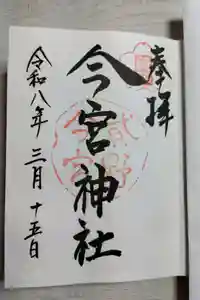 奉拝
今宮神社
令和八年 三月 十五日